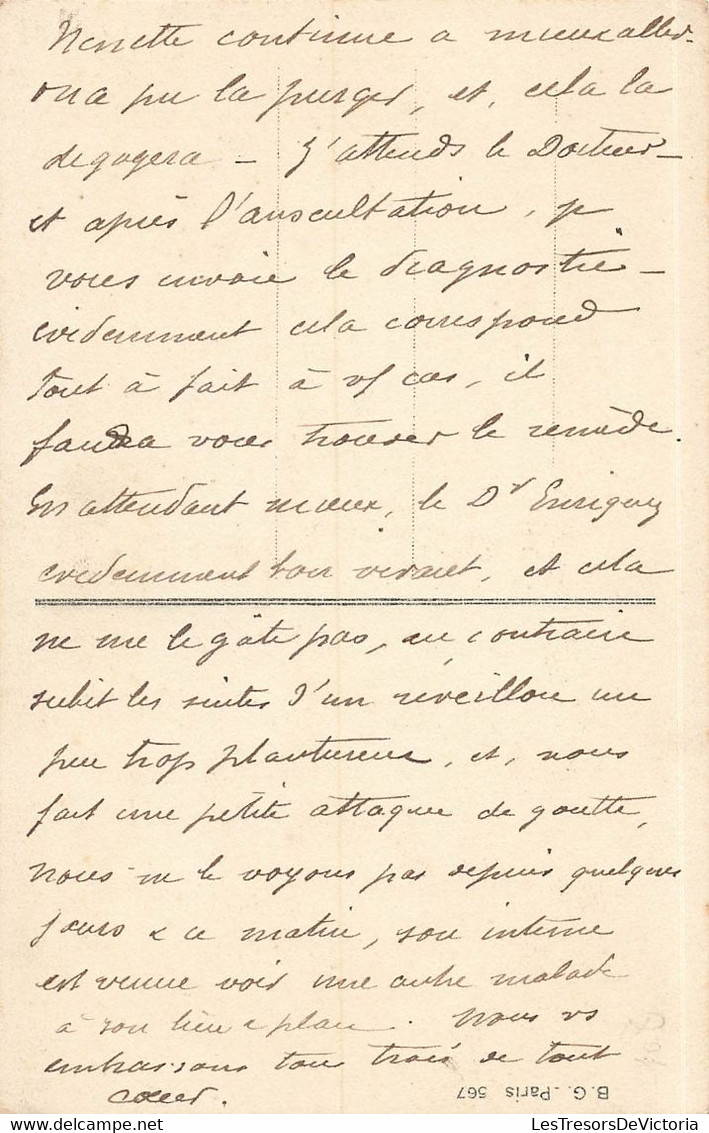 Nenette continue a mieux aller -
on a pu la purger, et, cela la
degagera - J'attends le Docteur -
et après l'auscultation, je
vous envoie le diagnostic -
evidemment cela correspond
tout à fait à vf cas, il
faudra vous trouver le remède.
En attendant mieux, le Dr
evidemment bon vivant, et cela
ne me le gâte pas, au contraire
subit les suites d'un réveillon un
peu trop plantureux, et, nous
fait une petite attaque de goutte,
nous ne le voyons pas depuis quelques
jours & ce matin, son interne
est venue voir une autre malade
à son lieu & place. Nous vs
embrassons tous trois de tout
coeur.
B. G. - Paris 567
LesTresorsDeVictoria
www.LesTresorsDeVictoria.com